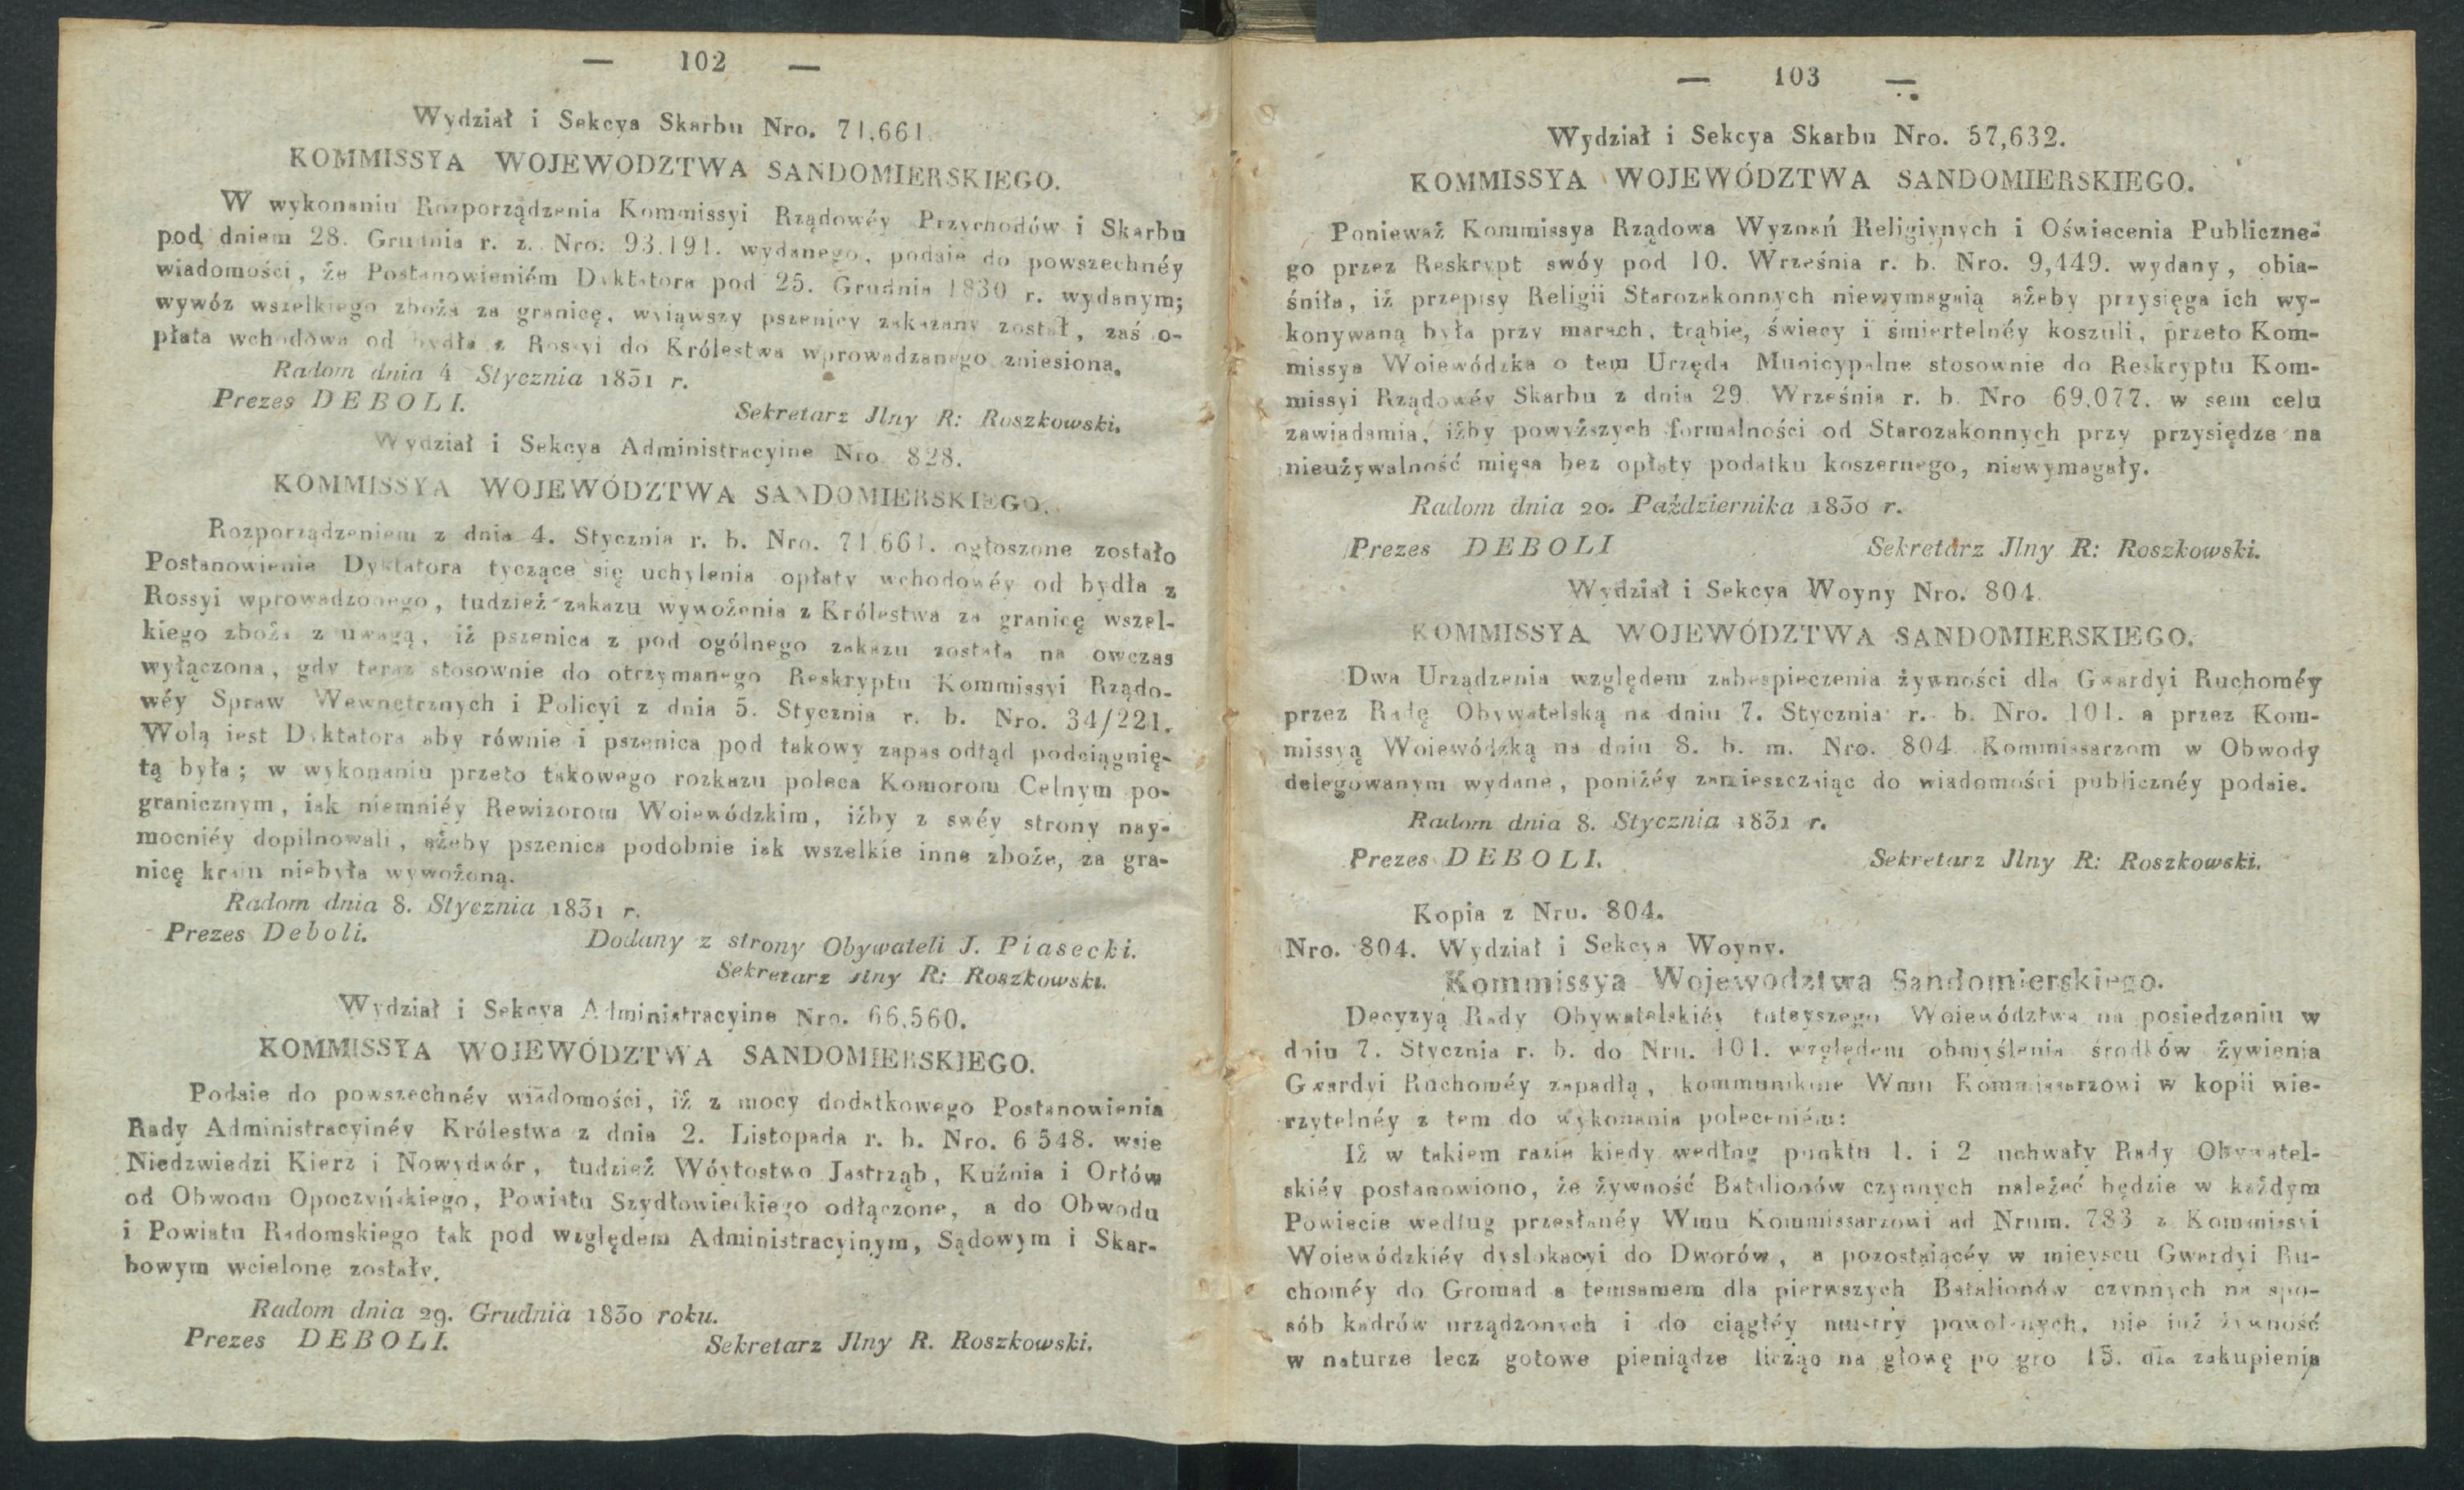 — 102 —
Wydział i Sekcya Skarbu Nro. 71,661.
KOMMISSYA WOJEWODZTWA SANDOMIERSKIEGO.
W wykonaniu Rozporządzenia Kommissyi Rządowéy Przychodów i Skarbu
pod dniem 28. Grudnia r. z. Nro. 93.191. wydanego, podaie do powszechnéy
wiadomości, że Postanowieniém Dyktatora pod 25. Grudnia 1830 r. wydanym;
wywóz wszelkiego zboża za granicę, wyiąwszy pszenicy zakazany został, zaś o-
płata wchodowa od bydła z Rossyi do Królestwa wprowadzanego zniesiona.
Radom dnia 4 Stycznia 1831 r.
Prezes DEBOLI.
Sekretarz Jlny R: Roszkowski.
Wydział i Sekcya Administracyine Nro 828.
KOMMISSYA WOJEWÓDZTWA SANDOMIERSKIEGO.
Rozporządzeniem z dnia 4. Stycznia r. b. Nro. 71,661. ogłoszone zostało
Postanowienie Dyktatora tyczące się uchylenia opłaty wchodowéy od bydła z
Rossyi wprowadzonego, tudzież zakazu wywożenia z Królestwa za granicę wszel-
kiego zboża z uwagą, iż pszenica z pod ogólnego zakazu została na owczas
wyłączona, gdy teraz stosownie do otrzymanego Reskryptu Kommissyi Rządo-
wéy Spraw Wewnętrznych i Policyi z dnia 5. Stycznia r. b. Nro. 34/221.
Wolą iest Dyktatora aby równie i pszenica pod takowy zapas odtąd podciągnię-
tą była; w wykonaniu przeto takowego rozkazu poleca Komorom Celnym po-
granicznym, iak niemniéy Rewizorom Woiewódzkim, iżby z swéy strony nay-
mocniéy dopilnowali, ażeby pszenica podobnie iak wszelkie inne zboże, za gra-
nicę kraiu niebyła wywożoną.
Radom dnia 8. Stycznia 1831 r.
Prezes Deboli.
Dodany z strony Obywateli J. Piasecki.
Sekretarz Jlny R: Roszkowski.
Wydział i Sekcya Administracyine Nro. 66,560.
KOMMISSYA WOJEWÓDZTWA SANDOMIERSKIEGO.
Podaie do powszechnéy wiadomości, iż z mocy dodatkowego Postanowienia
Rady Administracyinéy Królestwa z dnia 2. Listopada r. b. Nro. 6548. wsie
Niedzwiedzi Kierz i Nowydwór, tudzież Wóytostwo Jastrząb, Kuźnia i Orłów
od Obwodu Opoczyńskiego, Powiatu Szydłowieckiego odłączone, a do Obwodu
i Powiatu Radomskiego tak pod względem Administracyinym, Sądowym i Skar-
bowym wcielone zostały.
Radom dnia 29. Grudnia 1830 roku.
Prezes DEBOLI.
Sekretarz Jlny R. Roszkowski.
— 103 —
Wydział i Sekcya Skarbu Nro. 57,632.
KOMMISSYA WOJEWÓDZTWA SANDOMIERSKIEGO.
Ponieważ Kommissya Rządowa Wyznań Religiynych i Oświecenia Publiczne-
go przez Reskrypt swóy pod 10. Września r. b. Nro. 9,449. wydany, obia-
śniła, iż przepisy Religii Starozakonnych niewymagaią ażeby przysięga ich wy-
konywaną była przy marach, trąbie, świecy i śmiertelnéy koszuli, przeto Kom-
missya Woiewódzka o tem Urzęda Municypalne stosownie do Reskryptu Kom-
missyi Rządowéy Skarbu z dnia 29. Września r. b. Nro 69,077. w sem celu
zawiadamia, iżby powyższych formalności od Starozakonnych przy przysiędze na
nieużywalność mięsa bez opłaty podatku koszernego, niewymagały.
Radom dnia 20. Października 1830 r.
Prezes DEBOLI
Sekretarz Jlny R: Roszkowski.
Wydział i Sekcya Woyny Nro. 804.
KOMMISSYA WOJEWÓDZTWA SANDOMIERSKIEGO.
Dwa Urządzenia względem zabespieczenia żywności dla Gwardyi Ruchoméy
przez Radę Obywatelską na dniu 7. Stycznia r. b. Nro. 101. a przez Kom-
missyą Woiewódzką na dniu 8. b. m. Nro. 804. Kommissarzom w Obwody
delegowanym wydane, poniżéy zamieszczaiąc do wiadomości publicznéy podaie.
Radom dnia 8. Stycznia 1831 r.
Prezes DEBOLI.
Sekretarz Jlny R: Roszkowski.
Kopia z Nru. 804.
Nro. 804. Wydział i Sekcya Woyny.
Kommissya Województwa Sandomierskiego.
Decyzyą Rady Obywatelskiéy tuteyszego Woiewództwa na posiedzeniu w
dniu 7. Stycznia r. b. do Nru. 101. względem obmyślenia środków żywienia
Gwardyi Ruchoméy zapadłą, kommunikuie Wmu Kommissarzowi w kopii wie-
rzytelnéy z tem do wykonania poleceniém:
Iż w takiem razie kiedy według punktu 1. i 2 uchwały Rady Obywatel-
skiéy postanowiono, że żywność Batalionów czynnych należeć będzie w każdym
Powiecie według przesłanéy Wmu Kommissarzowi ad Nrum. 783 z Kommissyi
Woiewódzkiéy dyslokacyi do Dworów, a pozostaiącéy w mieyscu Gwardyi Ru-
choméy do Gromad a temsamem dla pierwszych Batalionów czynnych na spo-
sób kadrów urządzonych i do ciągłéy mustry powołanych, nie iuż żywność
w naturze lecz gotowe pieniądze licząc na głowę po gro 15. dla zakupienia